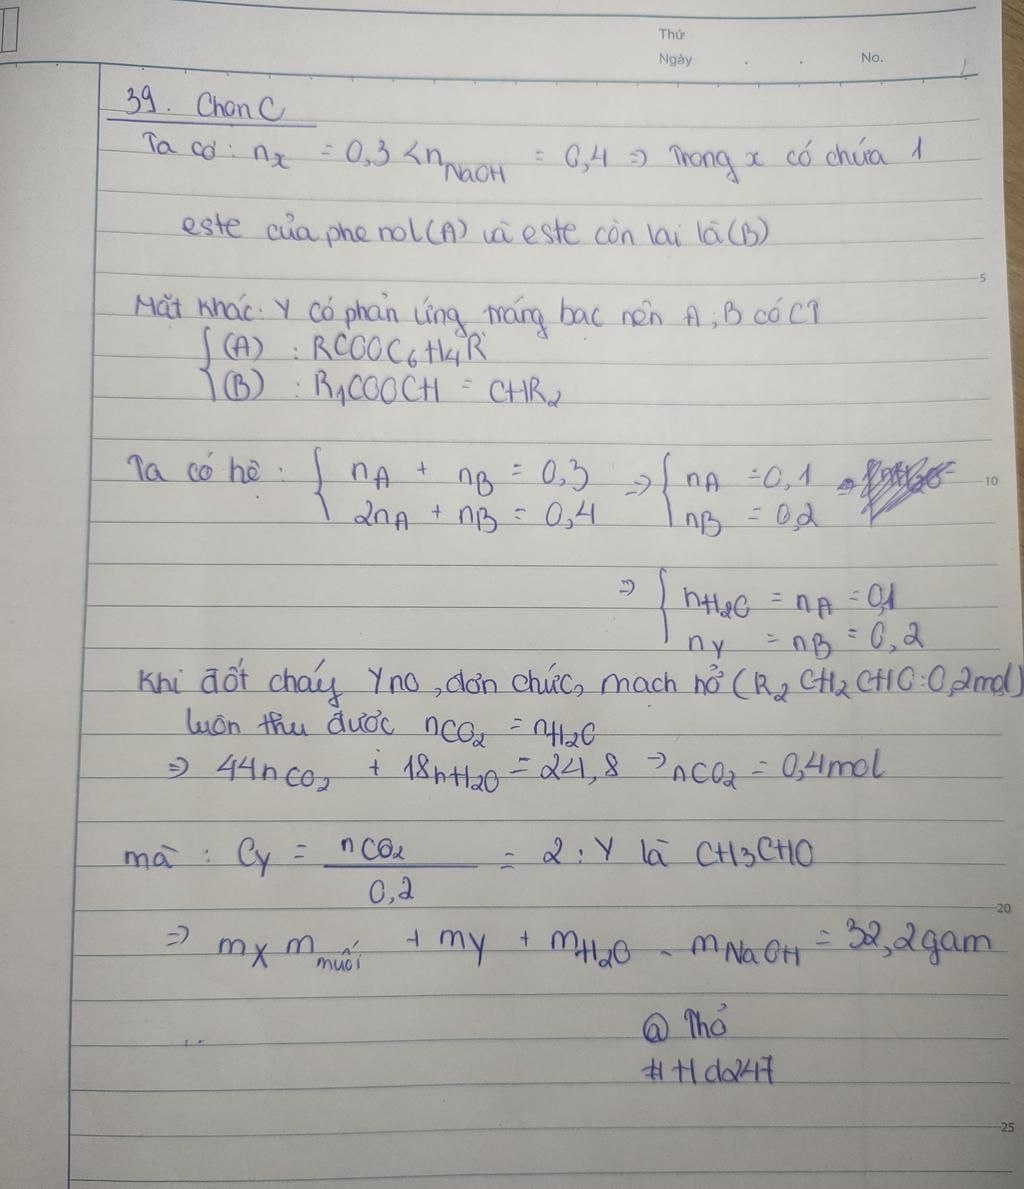 Thứ
Ngày . . No.
39. Chọn C
Ta có: nX = 0,3 < nNaOH = 0,4 => Trong x có chứa 1
este của phenol(A) và este còn lại là (B)
5
Mặt khác. Y có phản ứng tráng bạc nên A, B có CT
(A) : RCOOC6H4R'
(B) : R1COOCH = CHR2
Ta có hệ : { nA + nB = 0,3 => { nA = 0,1
10
2nA + nB = 0,4 nB = 0,2
=> { nH2O = nA = 0,1
nY = nB = 0,2
Khi đốt cháy Y no, đơn chức, mạch hở (R2CH2CHO: 0,2mol)
luôn thu được nCO2 = nH2O
=> 44nCO2 + 18nH2O = 24,8 -> nCO2 = 0,4mol
mà : CY = nCO2 / 0,2 = 2 : Y là CH3CHO
20
=> mX m muối + mY + mH2O - mNaOH = 32,2gam
@ Thỏ
# Hda247
25